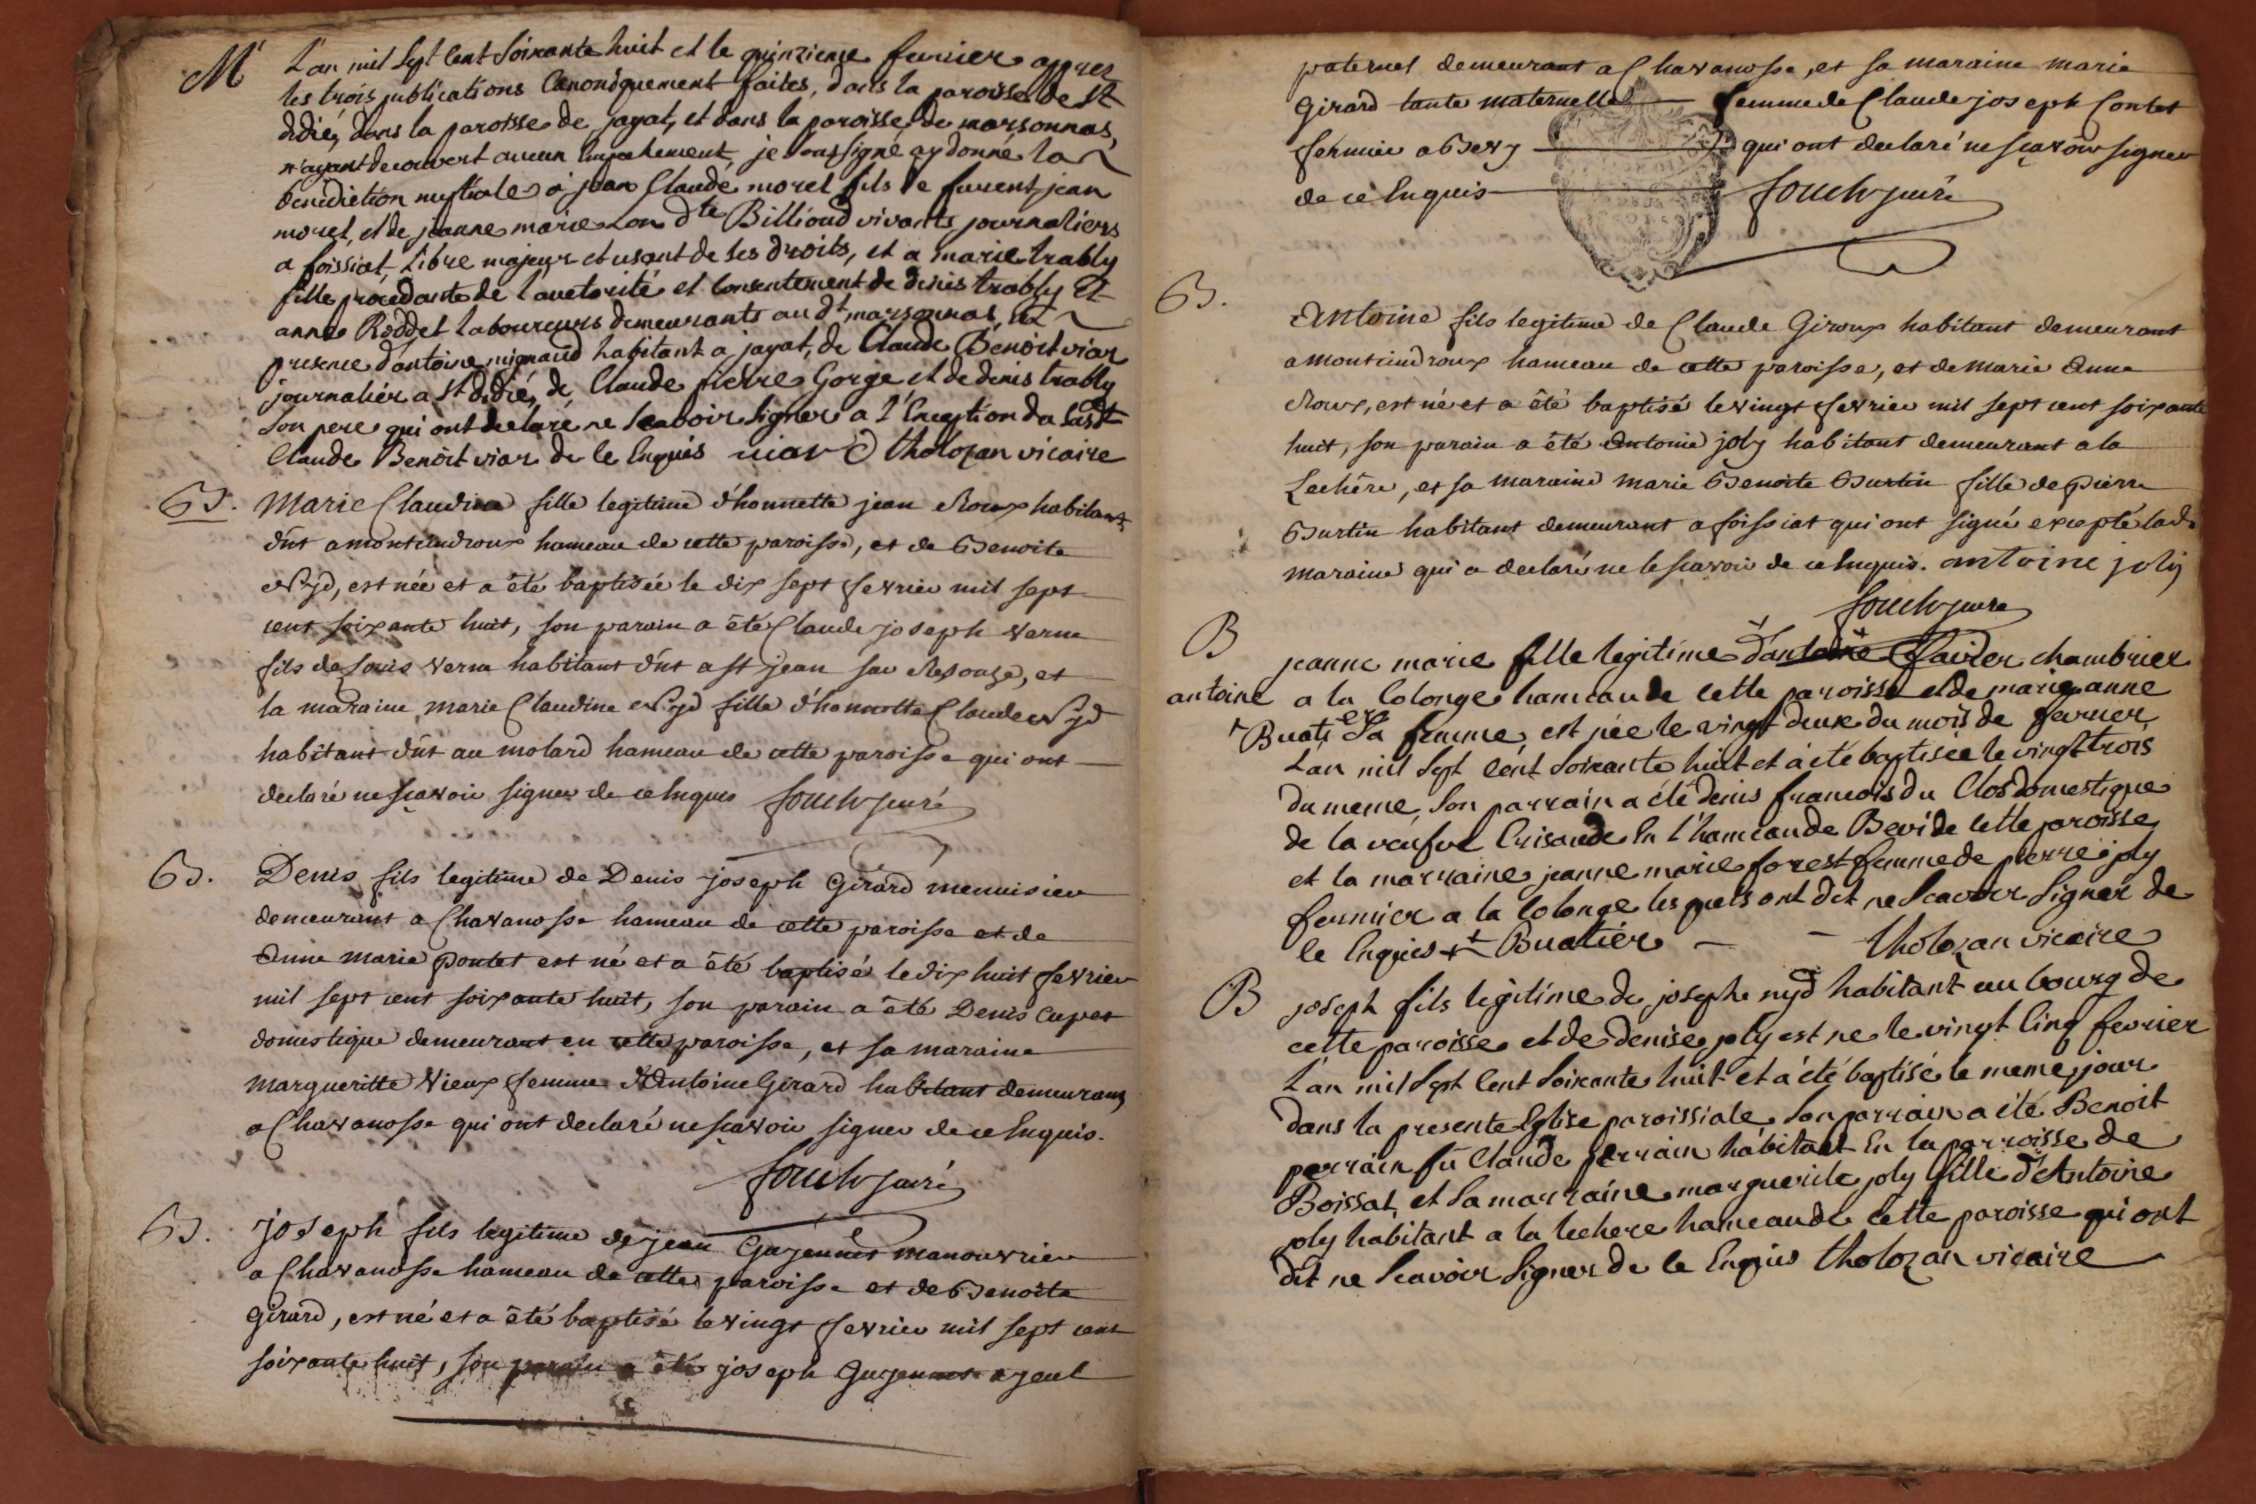 M L'an mil Sept Cent Soixante huit et le quinzieme fevrier apprez
les trois publications Canoniquement faites, dans la paroisse de St
didié, dans la paroisse de jayat, et dans la paroisse de marsonnas,
n'ayant decouvert aucun Empechement, je soussigné ay donné la
benediction nuptiale a jean Claude morel fils de furent jean
morel, et de jeanne marie Billioud vivants journaliers
a foissiat, Libre majeur et usant de ses droits, et a marie trably
fille procedante de l'auctorité et Consentement de denis trably Et
anne Roddet laboureurs demeurants au dt marsonnas, Et
presence d'antoine mignaud habitant a jayat, de Claude Benoit viar
journalier a St didié, de Claude pierre Gorge et de denis trably
son pere qui ont declaré ne Scavoir Signer a l'Exception du susdt
Claude Benoit viar de ce Enquis viard tholozan vicaire
B. Marie Claudine fille legitime d'honnette jean Roux habitant
dt a montcindroux hameau de cette paroisse, et de Benoite
Nyd, est née et a été baptisée le dix sept fevrier mil sept
cent soixante huit, son parain a été Claude joseph verne
fils de Louis verne habitant dt a st jean sur Resouze, et
la maraine marie Claudine Nyd fille d'honnette Claude Nyd
habitant dt au molard hameau de cette paroisse qui ont
declaré ne scavoir signer de ce Enquis curé
B. Denis fils legitime de Denis joseph Girard menuisier
demeurant a Chavanosse hameau de cette paroisse et de
Anne marie pontet est né et a été baptisé le dix huit fevrier
mil sept cent soixante huit, son parain a été Denis Cupet
domestique demeurant en cette paroisse, et sa maraine
margueritte vieux femme d'Antoine Girard habitant demeurant
a Chavanosse qui ont declaré ne scavoir signer de ce Enquis.
curé
B. joseph fils legitime de jean Guyennet manouvrier
a Chavanosse hameau de cette paroisse et de Benoite
Girard, est né et a été baptisé le vingt fevrier mil sept cent
soixante huit, son parain a été joseph Guyennet ayeul
paternel demeurant a Chavanosse, et sa maraine marie
Girard tante maternelle femme de Claude joseph Contet
fermier a Bevy qui ont declaré ne scavoir signer
de ce Enquis curé
B. Antoine fils legitime de Claude Giroux habitant demeurant
a montcindroux hameau de cette paroisse, et de marie Anne
Roux, est né et a été baptisé le vingt fevrier mil sept cent soixante
huit, son parain a été Antoine joly habitant demeurant a la
Lechère, et sa maraine marie Benoite Burtin fille de pierre
Burtin habitant demeurant a foissiat qui ont signé excepté lade
maraine qui a declaré ne le scavoir de ce Enquis. antoine joly
curé
B jeanne marie fille legitime d'antoine chambrier
antoine a la Colonge hameau de cette paroisse et de marie anne
+ Buatier Sa femme, est née le vingt deux du mois de fevrier
L'an mil Sept Cent Soixante huit et a été baptisée le vingt trois
du meme, Son parrain a été denis françois du Clos domestique
de la veufve Crisaude En l'hameau de Bevi de cette paroisse
et la marraine jeanne marie forest femme de pierre joly
fermier a la Colonge les quels ont dit ne Scavoir Signer de
ce Enquies + Buatier — — tholozan vicaire
B joseph fils legitime de joseph nyd habitant au bourg de
cette paroisse et de denise joly est ne le vingt Cinq fevrier
L'an mil Sept Cent Soixante huit et a été baptisé le meme jour
dans la presente Eglise paroissiale, Son parrain a été Benoit
perrain fû Claude perrain habitant En la parroisse de
Boissat, et Sa marraine marguerite joly fille d'Antoine
joly habitant a la lechere hameau de cette paroisse qui ont
dit ne Scavoir Signer de ce Enquis tholozan vicaire